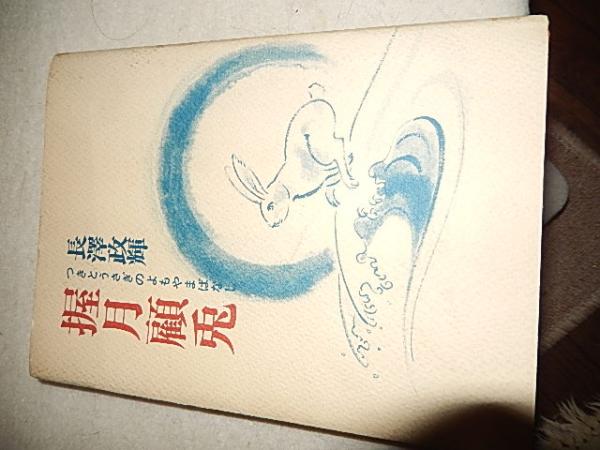 長澤政輝
つきとうさぎのよもやまばなし
握月顧兎